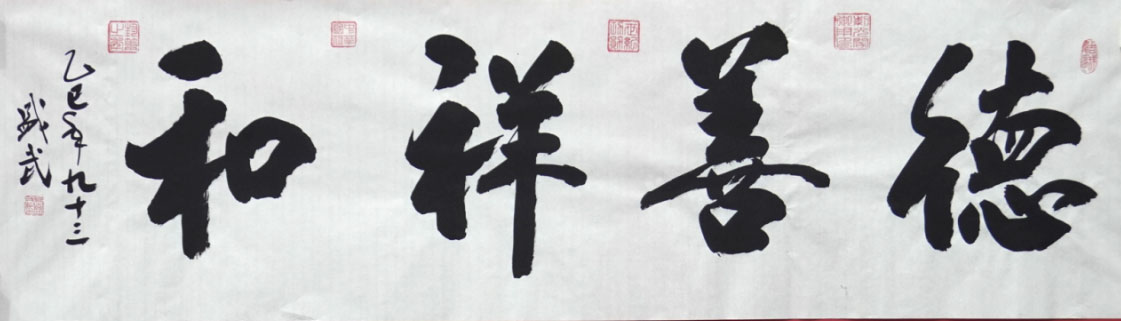 德善祥和
乙巳年九十三